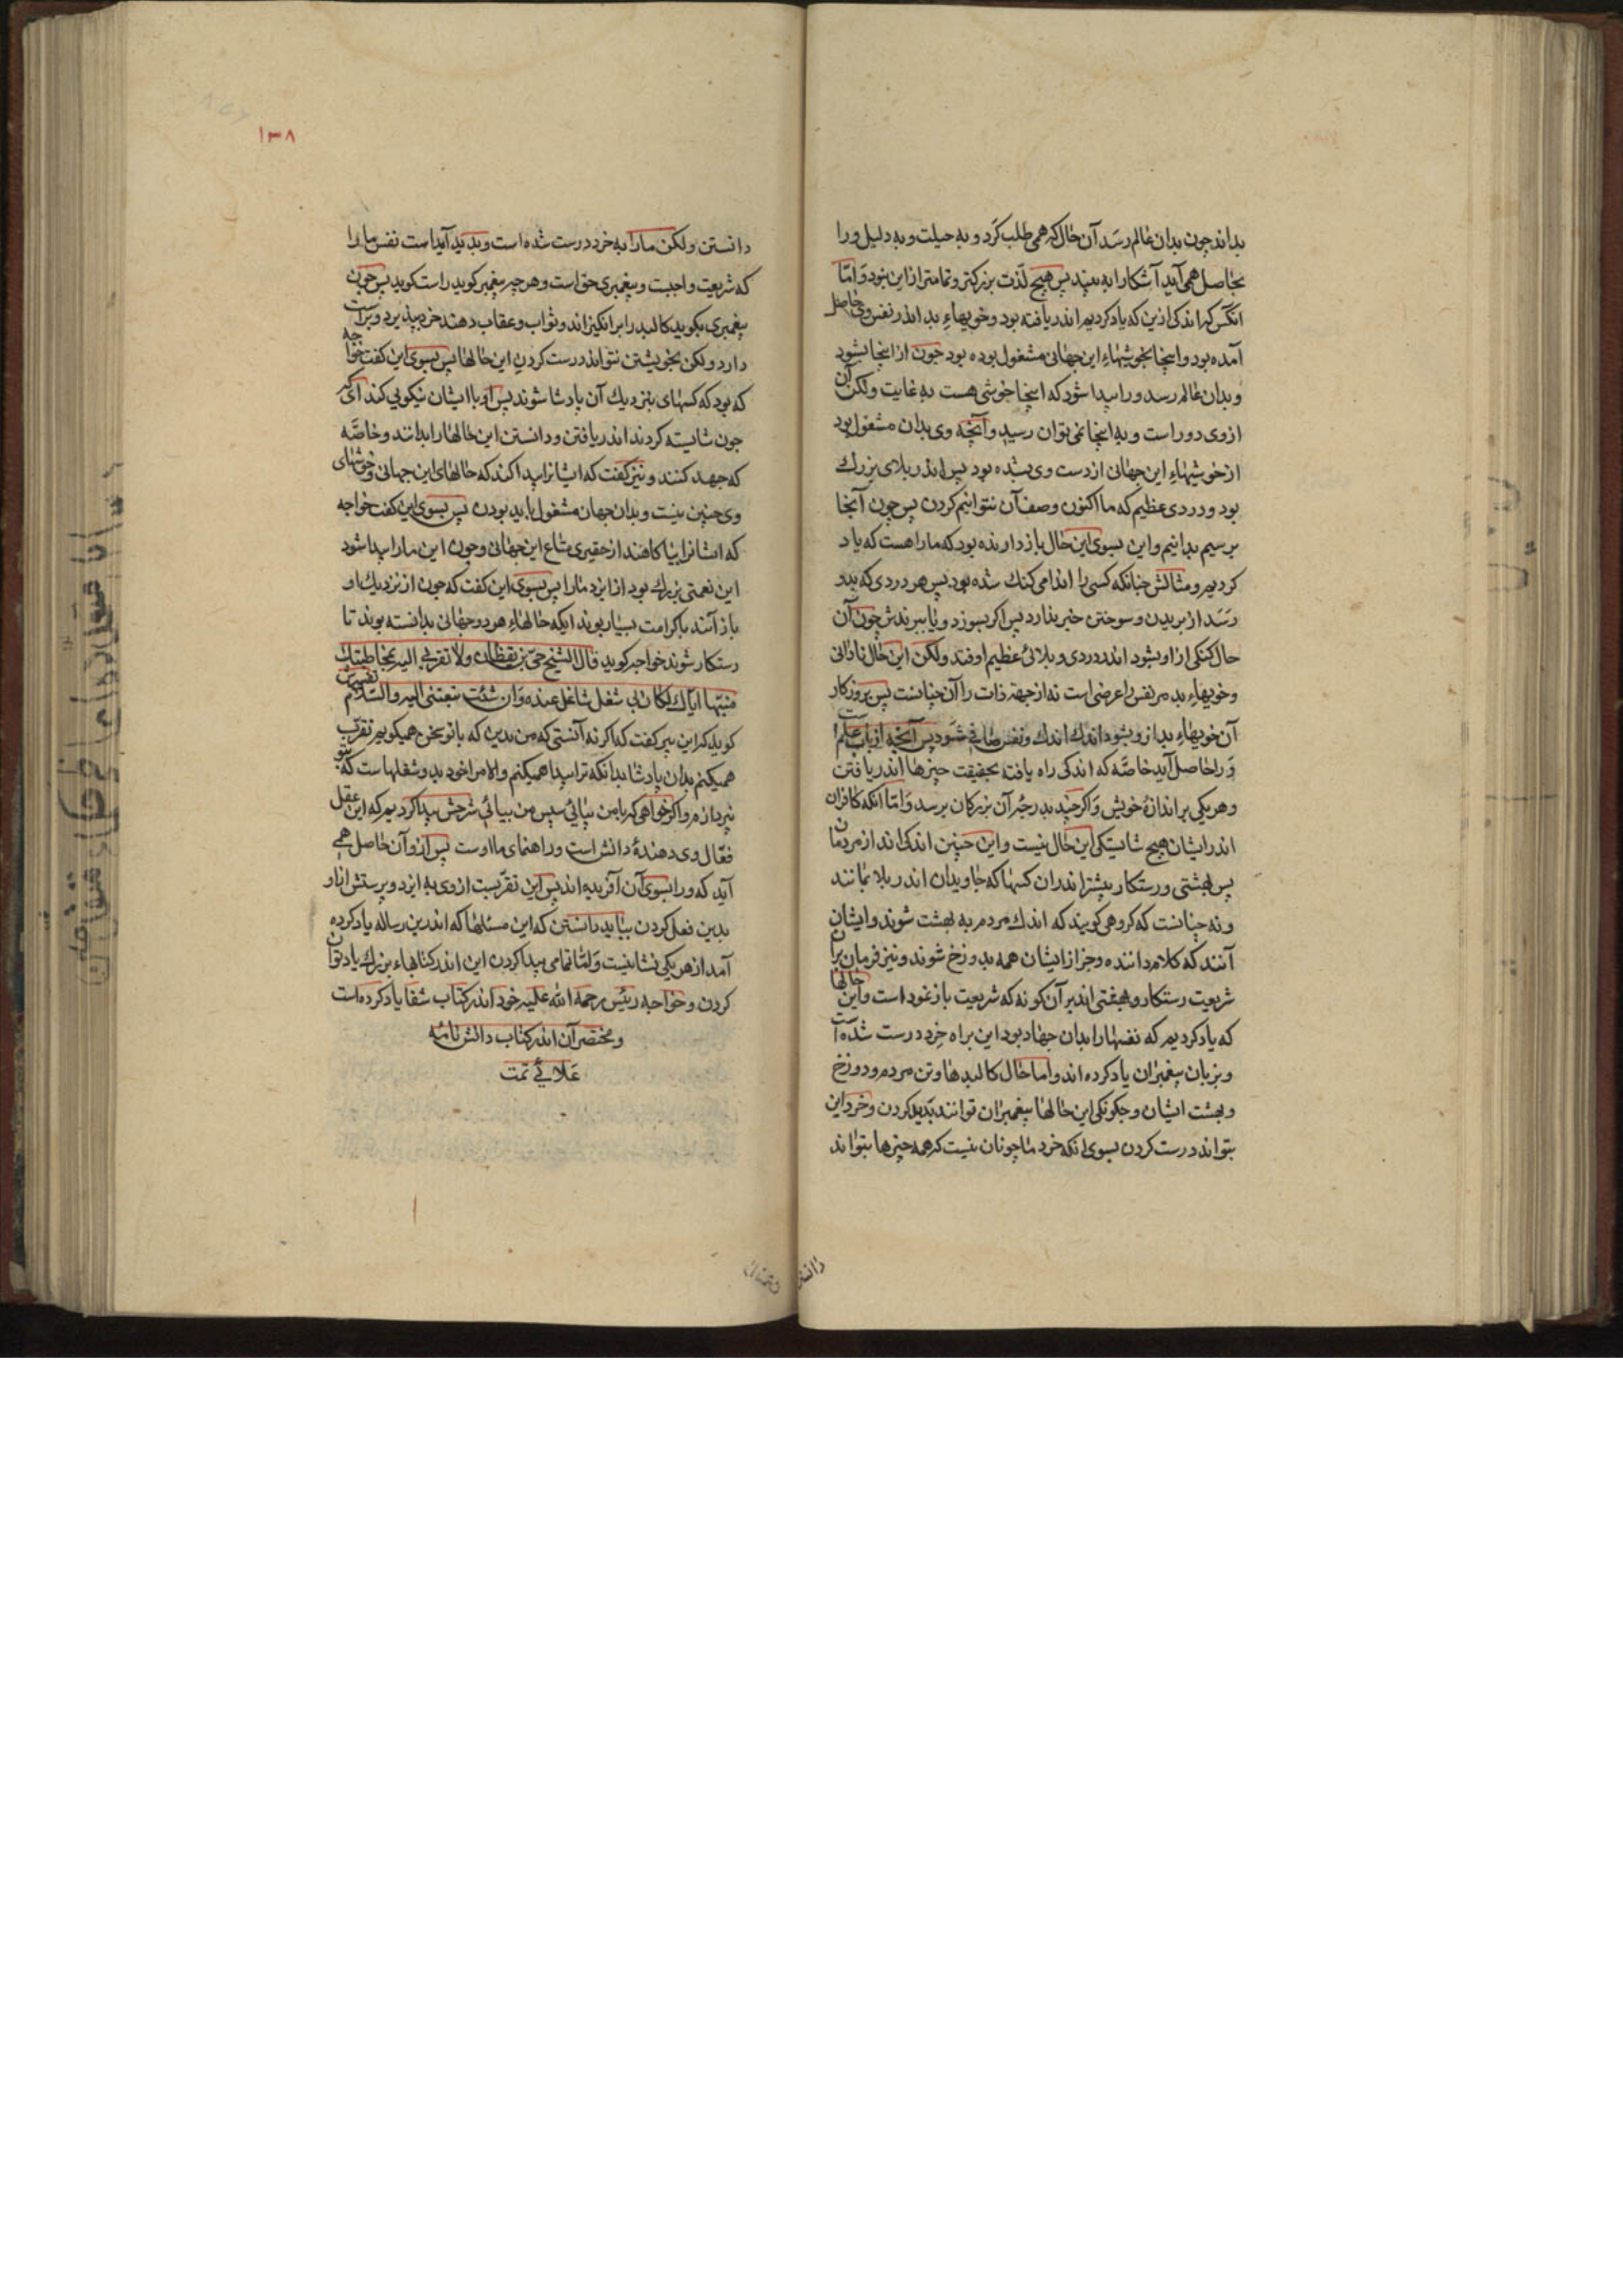 بداند چون بدان عالم رسد آن حال که همی طلب کرد و به حیلت و به دلیل ورا
بحاصل همی آید آشکارا به بیند پس هیچ لذت بزرکتر و تمامتر از این نبود و امّا
انکس که اندکی ازین که یاد کردیم اندر یافته بود و خویهاء بد اندر نفس وی حاصل
آمده بود و اینجا بخوشیهاء این جهانی مشغول بوده بود چون از اینجا بشود
و بدان عالم رسد ورا پیدا شود که اینجا خوشی هست به غایت ولکن آن
از وی دور است و به اینجا نمی توان رسید و آنچه وی بدان مشغول بود
از خوشیهاء این جهانی از دست وی بشده بود پس اندر بلای بزرك
بود و دردی عظیم که ما اکنون وصف آن نتوانیم کردن پس چون آنجا
برسیم بدانیم و این بسوی این حال باز دارنده بود که ما را هست که یاد
کردیم و مثالش چنانکه کسی را اندامی کنك شده بود پس هر دردی که بدو
رسد از بریدن و سوختن خبر ندارد پس اکر بسوزد و یا ببرندش چون آن
حال کنکی از او بشود اندر دردی و بلائی عظیم اوفتد ولکن این حال نادانی
و خویهاء بد مر نفس را عرضی است نه از جهة ذات را آن چنانست پس بروزکار
آن خویهاء بد از و بشود اندك اندك و نفس صافی شود پس آنچه از باب علم است
ورا حاصل آید خاصّه که اندکی راه یافته بحقیقت چیزها اندر یافتن
و هر یکی بر اندازهٔ خویش و اکر چند بدرجهٔ آن بزرکان برسد و امّا انکه کافران
اندر ایشان هیچ شایستکی این حال نیست و این چنین اندکی اند از مردمان
پس بهشتی و رستکار بیشتر اند از آن کسها که جاویدان اندر بلا بمانند
و نه چنانست که کروهی کویند که اندك مردم به بهشت شوند و ایشان
آنند که کلام داننده و جز از ایشان همه بدوزخ شوند و نیز فرمان بران
شریعت رستکار و بهشتی اند بر آن کونه که شریعت باز نمود است و این حالها
که یاد کردیم که نفسها را بدان جهان بود این براه خرد درست شده است
و بزبان پیغمبران یاد کرده اند و اما حال کالبدها و تن مردم و دوزخ
و بهشت ایشان و چکونکی این حالها پیغمبران توانند پدید کردن و خرد این
بتواند درست کردن بسوی انکه خرد ما چونان نیست که همه چیزها بتواند
دانستن
۱۳۸
دانستن ولکن ما را به خرد درست شده است و پدید آمداست نفس ما را
که شریعت واجبست و پیغمبری حق است و هر چه پیغمبر کوید راست کوید پس چون
پیغمبری بکوید کالبد را بر انکیزاند و ثواب و عقاب دهند خرد بپذیرد و براست
دارد ولکن بخویشتن نتواند درست کردن این حالها پس بسوی این کفت خواجه
که بود که کسهای بنزدیك آن پادشا شوند پس او با ایشان نیکویی کند ای که
چون شایسته کردند اندر یافتن و دانستن این حالها را بدانند و خاصّه
که جهد کنند و نیز کفت که ایشانرا پیدا کند که حالهای این جهانی و خوشهای
وی چنین نیست و بدان جهان مشغول باید بودن پس بسوی این کفت خواجه
که ایشانرا بیاکاهند از حقیری متاع این جهانی و چون این ما را پیدا شود
این نعمتی بزرك بود از ایزد ما را پس بسوی این کفت که چون از نزدیك او
باز آیند با کرامت بسیار بوند ایکه حالهاء هر دو جهانی بدانسته بوند تا
رستکار شوند خواجه کوید قال الشیخ حیّ بن یقظان ولا تقربی الیه بمخاطبتك
منبّها ایّاك لکان لی شغل شاغل عنه وان شئت تبعتنی الیه والسّلام تفسیرش
کوید که این پیر کفت که اکر نه آنستی که من بدین که با تو سخن همیکویم تقرّب
همیکنم بدان پادشا بدانکه ترا پیدا همیکنم والا مرا خود بدو شغلهاست که بتو
نپردازم و اکر خواهی که با من بیائی سپس من بیائی شرحش پیدا کردیم که این عقل
فعّال وی دهندهٔ دانش است و راهنمای ما اوست پس از و آن حاصل همی
آید که ورا بسوی آن آفریده اند پس این تقرّبست از وی به ایزد و پرستش از او
بدین فعل کردن بباید دانستن که این مسئلها که اندرین رساله یاد کرده
آمد از هر یکی نشانیست و امّا تمامی پیدا کردن این اندر کتابهاء بزرك یاد توان
کردن و خواجه رئیس رحمة الله علیه خود اندر کتاب شفا یاد کرده است
و مختصر آن اندر کتاب دانش نامهٔ
علائی تمّت